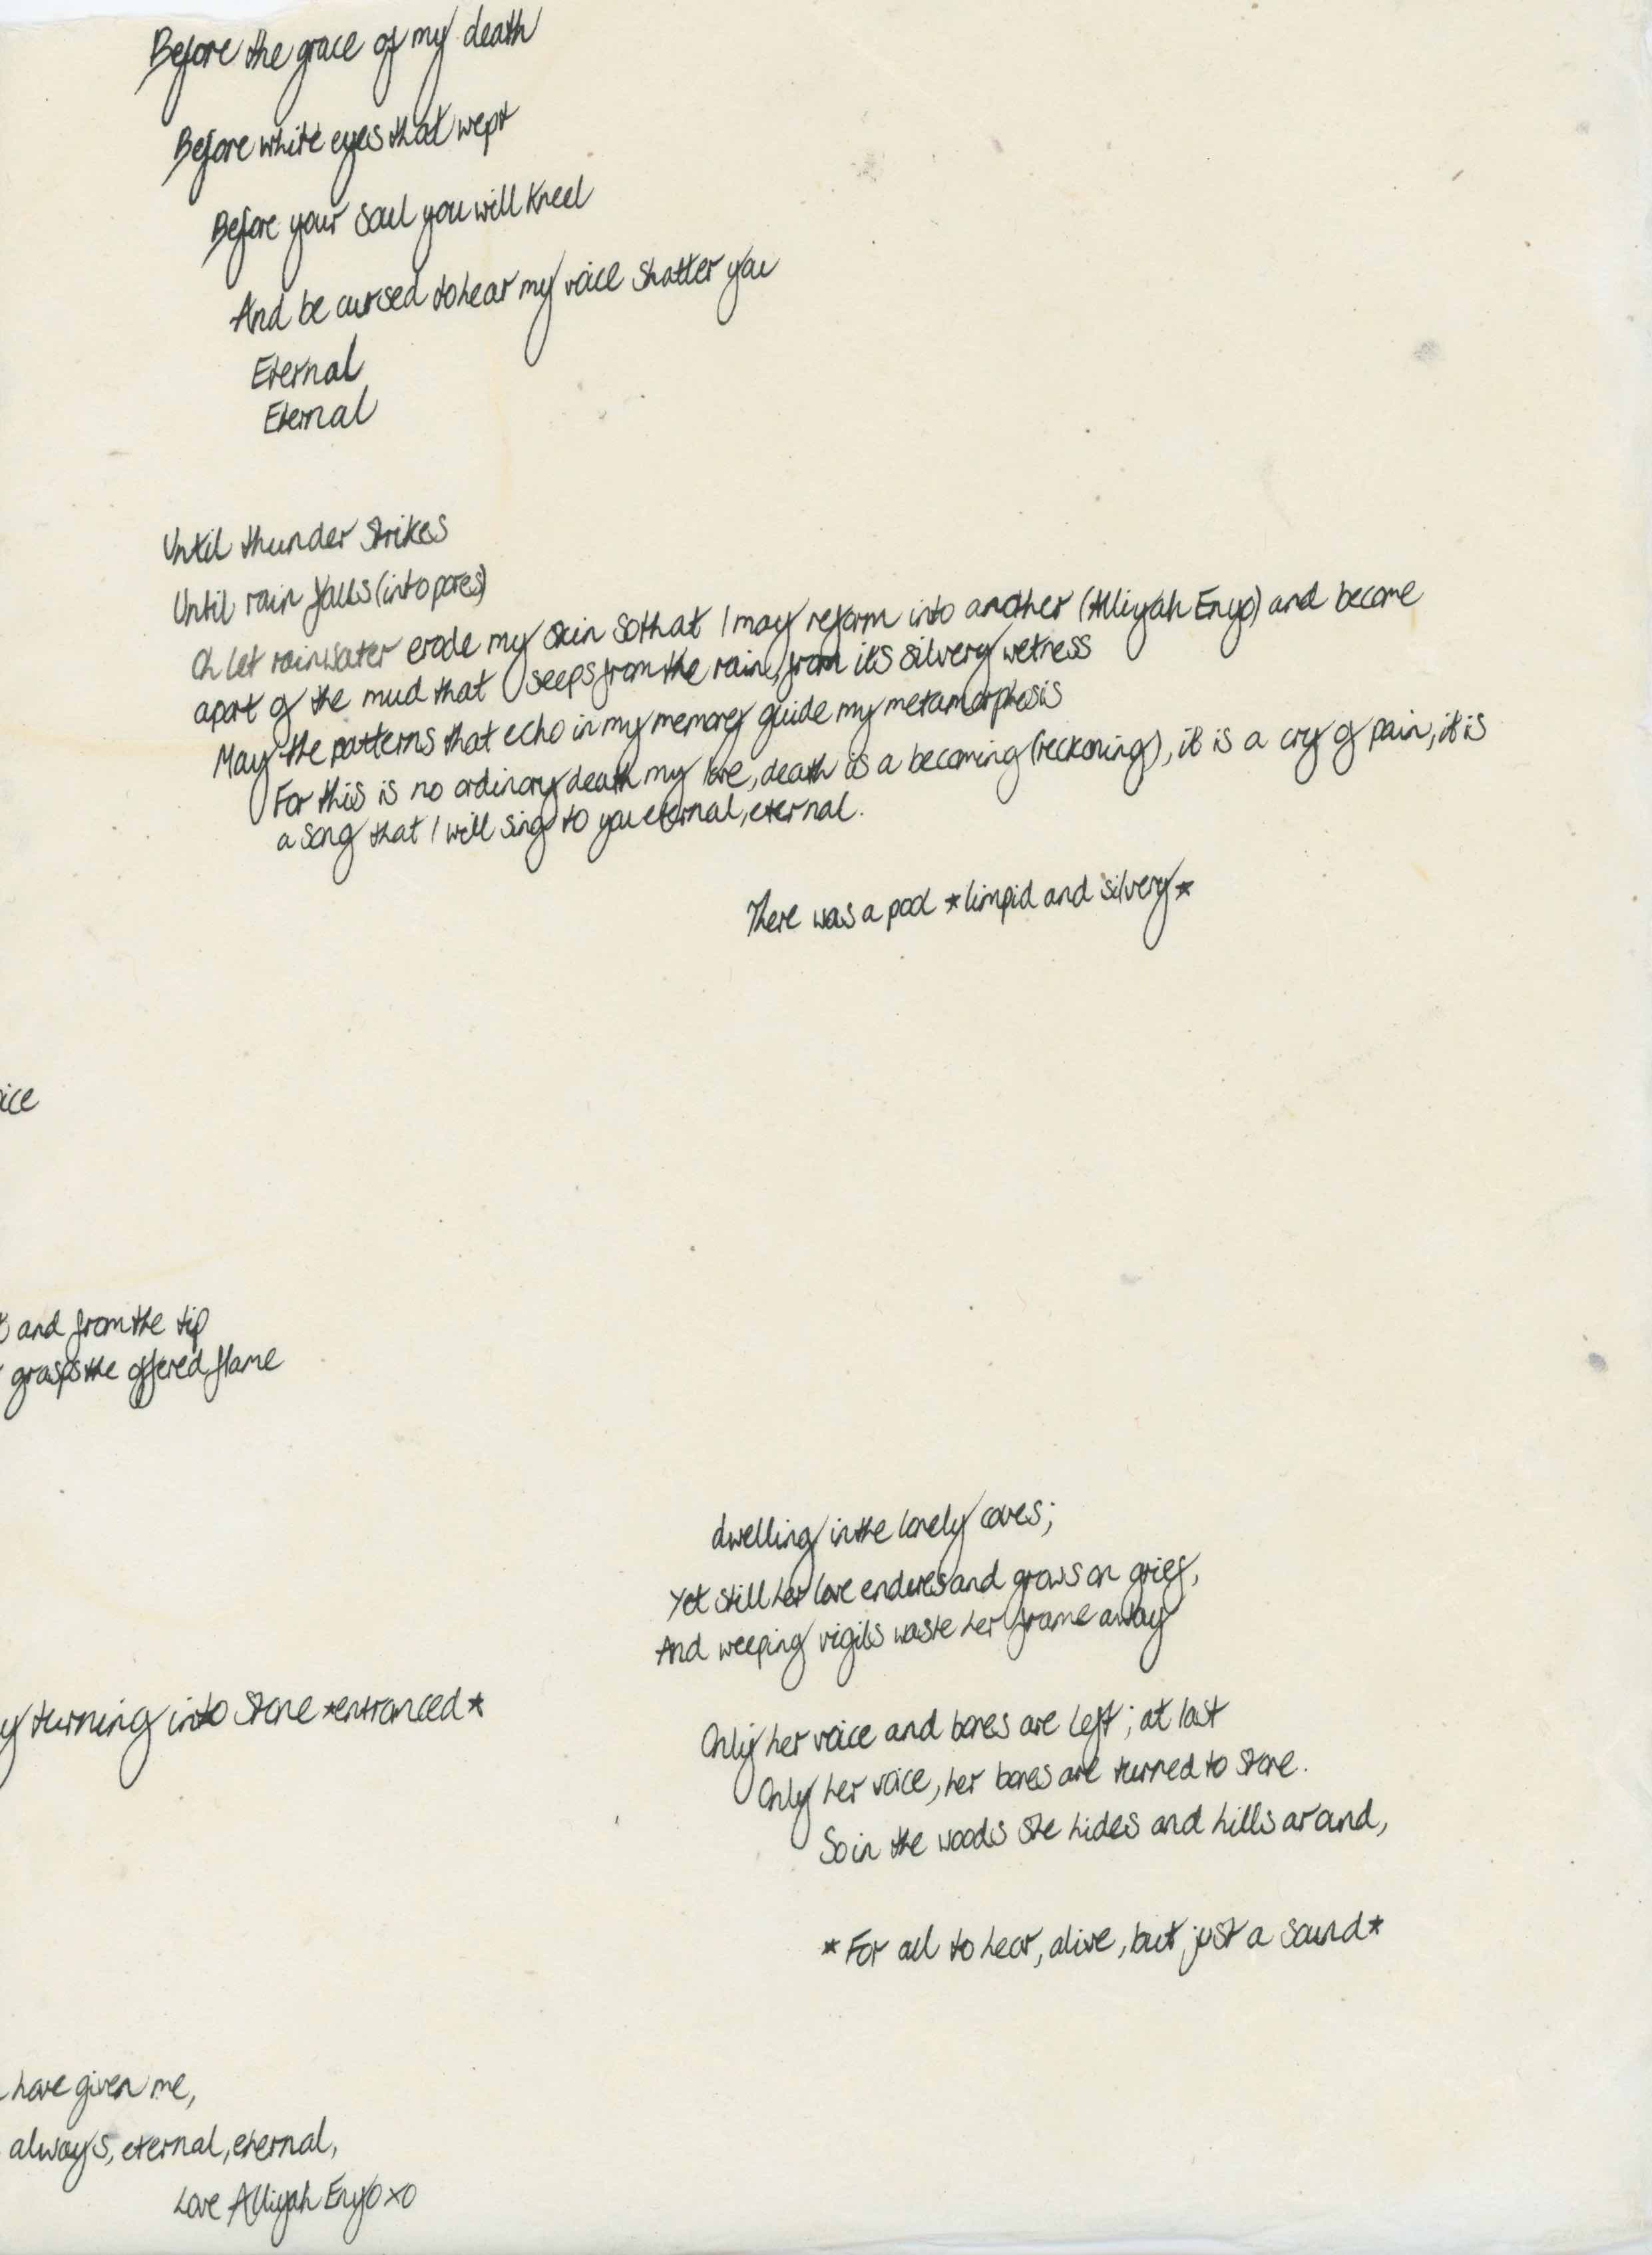 Before the grace of my death
Before white eyes that wept
Before your soul you will kneel
And be cursed to hear my voice shatter you
Eternal
Eternal
Until thunder strikes
Until rain falls (into pores)
Oh let rainwater erode my skin so that I may reform into another (Alliyah Enyo) and become
apart of the mud that seeps from the rain, from its silvery wetness
May the patterns that echo in my memory guide my metamorphosis
For this is no ordinary death my love, death is a becoming (reckoning), it is a cry of pain, it is
a song that I will sing to you eternal, eternal.
There was a pool *limpid and silvery*
and from the tip
grasps the offered flame
dwelling in the lonely caves;
Yet still her love endures and grows on grief,
And weeping vigils waste her frame away
turning into stone *entranced*
Only her voice and bones are left; at last
Only her voice, her bones are turned to stone.
So in the woods she hides and hills around,
*For all to hear, alive, but just a sound*
have given me,
always, eternal, eternal,
Love Alliyah Enyo xo